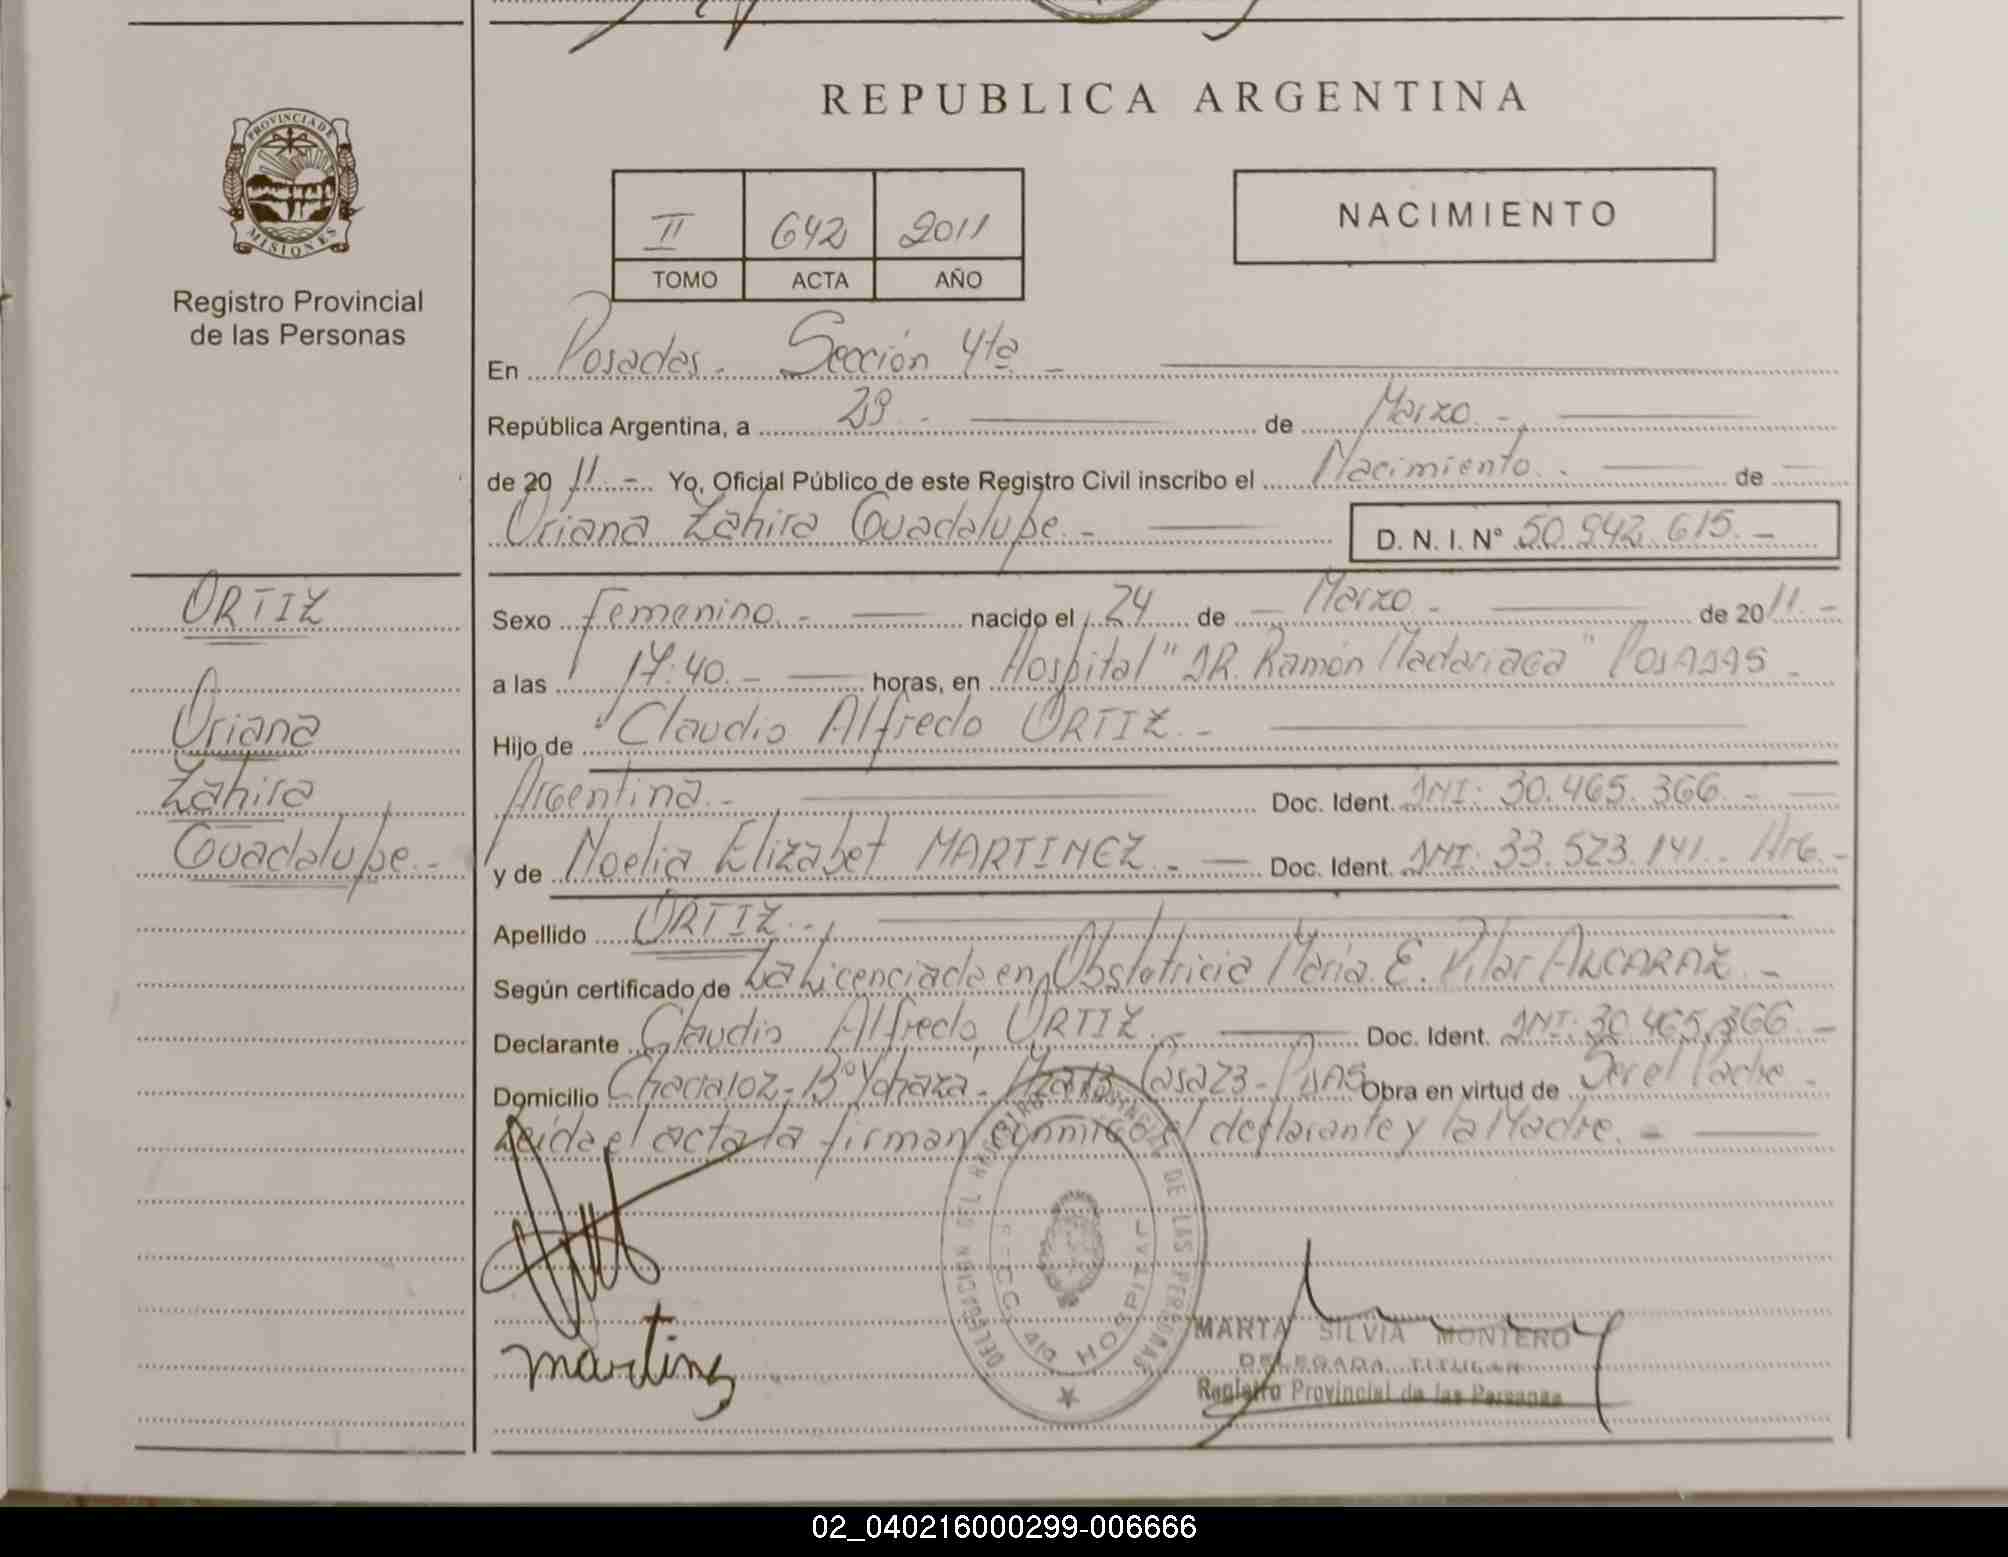 REPUBLICA ARGENTINA
PROVINCIA DE
MISIONES
Registro Provincial
de las Personas
II 642 2011
TOMO ACTA AÑO
NACIMIENTO
En Posadas - Sección 4ta -
República Argentina, a 29 - de Marzo -
de 20 11 - Yo, Oficial Público de este Registro Civil inscribo el Nacimiento - de
Oriana Zahira Guadalupe - D. N. I. N° 50.942.615 -
ORTIZ
Oriana
Zahira
Guadalupe -
Sexo Femenino - nacido el 24 de - Marzo - de 20 11 -
a las 17:40 - horas, en Hospital "DR. Ramón Madariaga" Posadas -
Hijo de Claudio Alfredo ORTIZ -
Argentina - Doc. Ident. DNI: 30.465.366 -
y de Noelia Elizabet MARTINEZ - Doc. Ident. DNI: 33.523.141. Arg -
Apellido ORTIZ -
Según certificado de La Licenciada en Obstetricia María E. Pilar ALCARAZ -
Declarante Claudio Alfredo ORTIZ - Doc. Ident. DNI: 30.465.366 -
Domicilio Casa 23 - Obra en virtud de Ser el Padre -
Leída el acta la firman conmigo el declarante y la Madre. -
DELEGACION DEL REGISTRO PROVINCIAL DE LAS PERSONAS
HOSPITAL
martinz
MARTA SILVIA MONTERO
DELEGADA TITULAR
Registro Provincial de las Personas
02_040216000299-006666